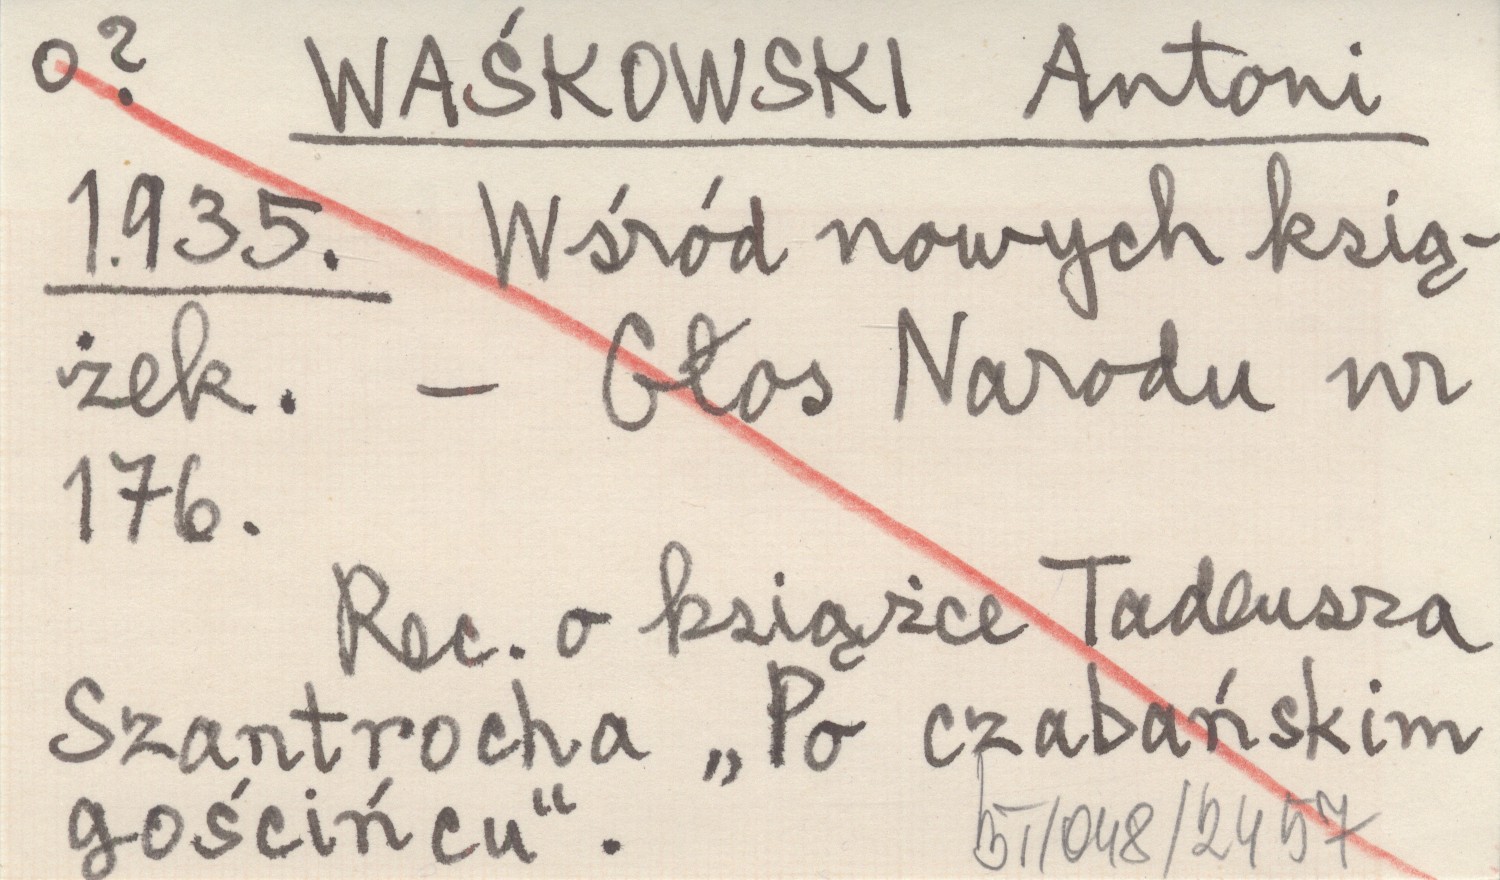 o?
WAŚKOWSKI Antoni
1935. Wśród nowych ksią-
żek. – Głos Narodu nr
176.
Rec. o książce Tadeusza
Szantrocha „Po czabańskim
gościńcu“.
BI/048/2457